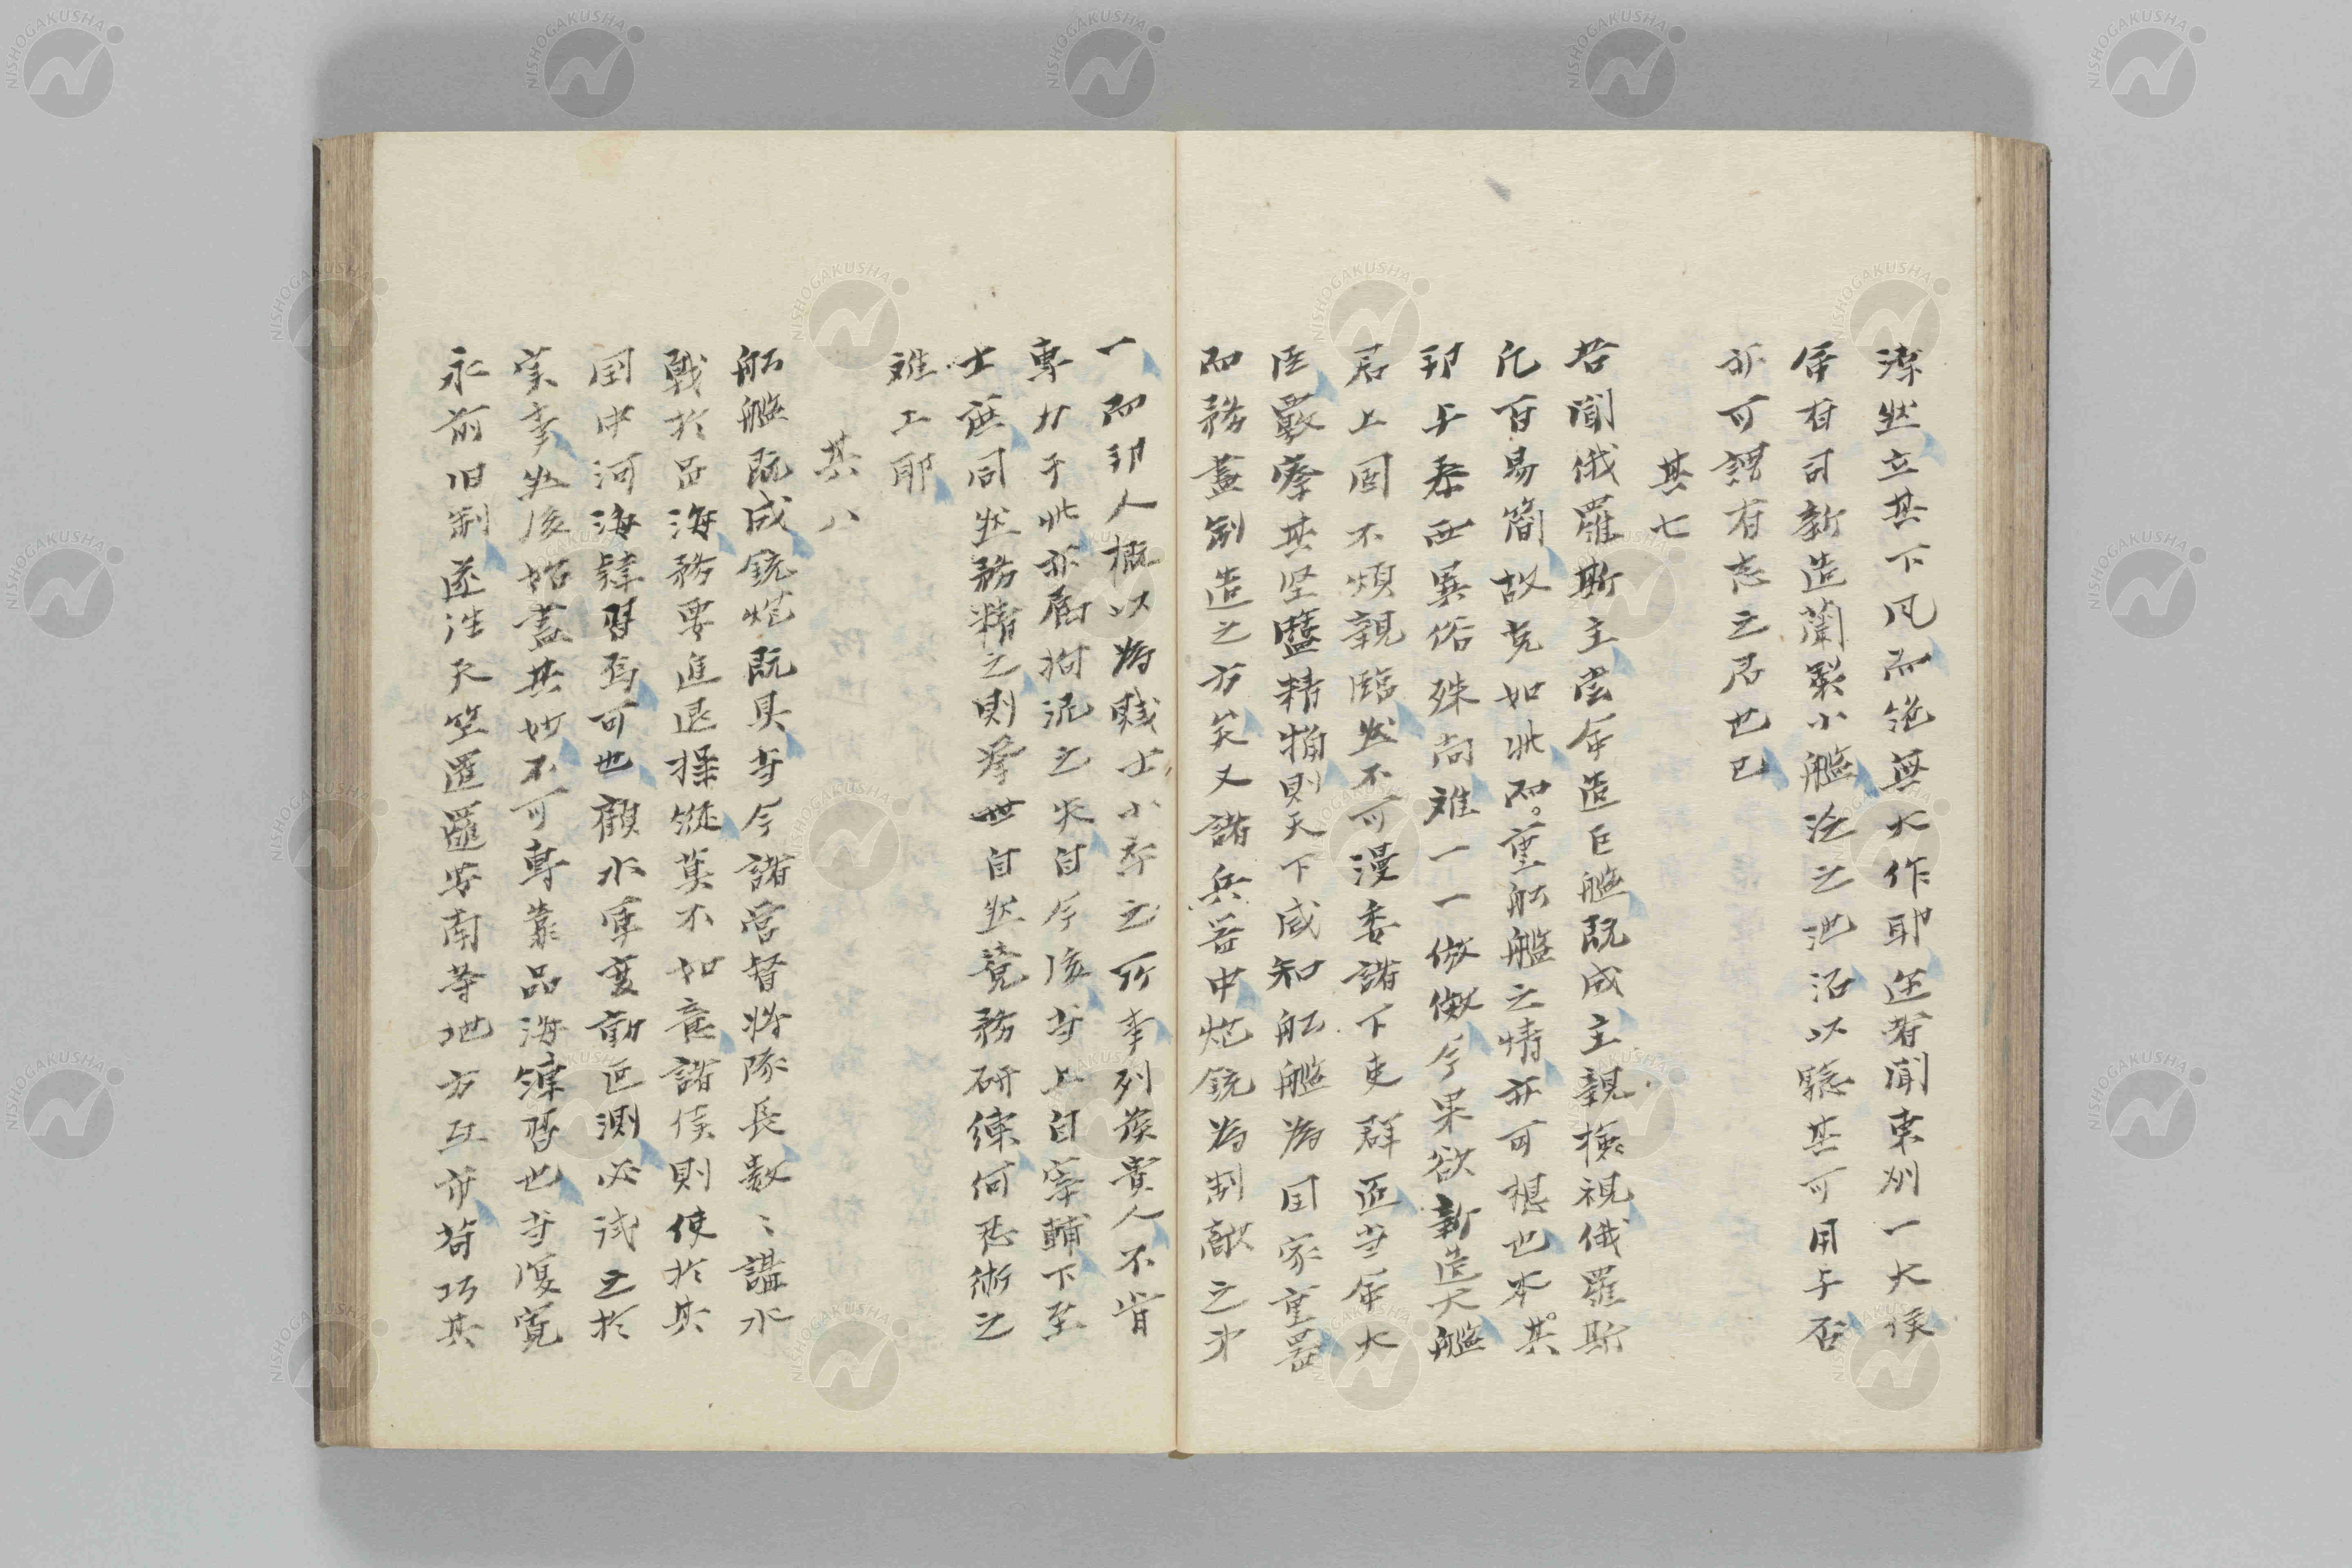 深然立其下凡而絶無大作耶近者聞東州一大侯
命有司新造蘭製小艦泛之池沼以驗其可用与否
亦可謂有志之君也已
其七
昔聞俄羅斯主常命造巨艦既成主親檢視俄羅斯
凡百易簡故克如此而重船艦之情亦可想也本其
邦与泰西異俗殊尚难一一倣傚今果欲新造大艦
君上固不煩親臨然不可漫委諸下吏群臣当命大
臣嚴察其坚鹽精粗則天下咸知船艦為国家重器
而務盡制造之方矣又諸兵器中炮銃為制敵之才
一而邦人概以為賤士小卒之所事列侯貴人不肯
專力于此亦屬拘泥之失自今後宜上自宰輔下至
士庶同然務精之則擧世自然競務研練何患術之
难工耶
其八
船艦既成銃炮既具宜令諸営督将隊長数〻講水
戰於沿海務要進退操縦莫不如意諸侯則使於其
国中河海肄習焉可也顧水軍変動叵測必試之於
実事然後始盡其妙不可專靠品海演習也宜復寛
永前旧制遂往天竺暹羅安南等地方互市苟巧其